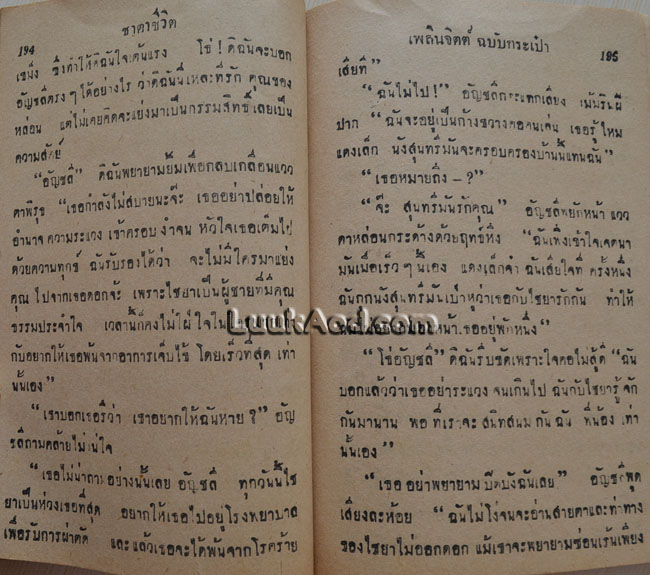 194
ชาตาชีวิต
เซนึ่ง ซึ่งทำให้ดิฉันใจเต้นแรง โธ่! ดิฉันจะบอก
อัญชลีตรง ๆ ได้อย่างไร ว่าดิฉันนี่แหละที่รัก คุณของ
หล่อน แต่ไม่เคยคิดจะแย่งมาเป็นกรรมสิทธิ์เลยเป็น
ความสัตย์
"อัญชลี" ดิฉันพยายามยิ้มเพื่อกลบเกลื่อนแวว
ตาพิรุธ "เธอกำลังไม่สบายนะจ๊ะ เธออย่าปล่อยให้
อำนาจความระแวง เข้าครอบงำจน หัวใจเธอเต็มไป
ด้วยความทุกข์ ฉันรับรองได้ว่า จะไม่มีใครมาแย่ง
คุณไปจากเธอดอกจ้ะ เพราะไชยาเป็นผู้ชายที่มีคุณ
ธรรมประจำใจ เวลานี้ก็คงไม่ใฝ่ใจใน
กับอยากให้เธอพ้นจากอาการเจ็บไข้ โดยเร็วที่สุด เท่า
นั้นเอง"
"เขาบอกเธอรึว่า เขาอยากให้ฉันหาย?" อัญ
ชลีถามคล้ายไม่แน่ใจ
"เธอไม่น่าถามอย่างนั้นเลย อัญชลี ทุกวันนี้ไช
ยาเป็นห่วงเธอที่สุด อยากให้เธอไปอยู่โรงพยาบาล
เพื่อรับการผ่าตัด และแล้วเธอจะได้พ้นจากโรคร้าย
เพลินจิตต์ ฉบับกระเป๋า
195
เสียที"
"ฉันไม่ไป!" อัญชลีกระแทกเสียง เม้มริมฝี
ปาก "ฉันจะอยู่เป็นก้างขวางคอคนเช่น เธอรู้ไหม
แดงเล็ก นังสุนทรีมันจะครอบครองบ้านนี้แทนฉัน"
"เธอหมายถึง -?"
"จ๊ะ สุนทรีมันรักคุณ" อัญชลีพยักหน้า แวว
ตาหล่อนกระด้างด้วยฤทธิ์หึง "ฉันเพิ่งเข้าใจเจตนา
มันเมื่อเร็ว ๆ นี้เอง แดงเล็กจ๋า ฉันเสียใจที่ ครั้งหนึ่ง
ฉันถูกนังสุนทรีมันเป่าหูว่าเธอกับไชยารักกัน ทำให้
หน้าเธออยู่พักหนึ่ง"
"โธ่อัญชลี" ดิฉันรีบขัดเพราะใจคอไม่สู้ดี "ฉัน
บอกแล้วว่าเธออย่าระแวง จนเกินไป ฉันกับไชยารู้ จัก
กันมานาน พอ ที่เราจะ สนิทสนม กัน ฉัน พี่น้อง เท่า
นั้นเอง"
"เธอ อย่าพยายาม ปิดบังฉันเลย" อัญชลีพูด
เสียงละห้อย "ฉันไม่โง่จนจะอ่านสายตาและท่าทาง
ของไชยาไม่ออกดอก แม้เขาจะพยายามซ่อนเร้นเพียง
LuukAod.com